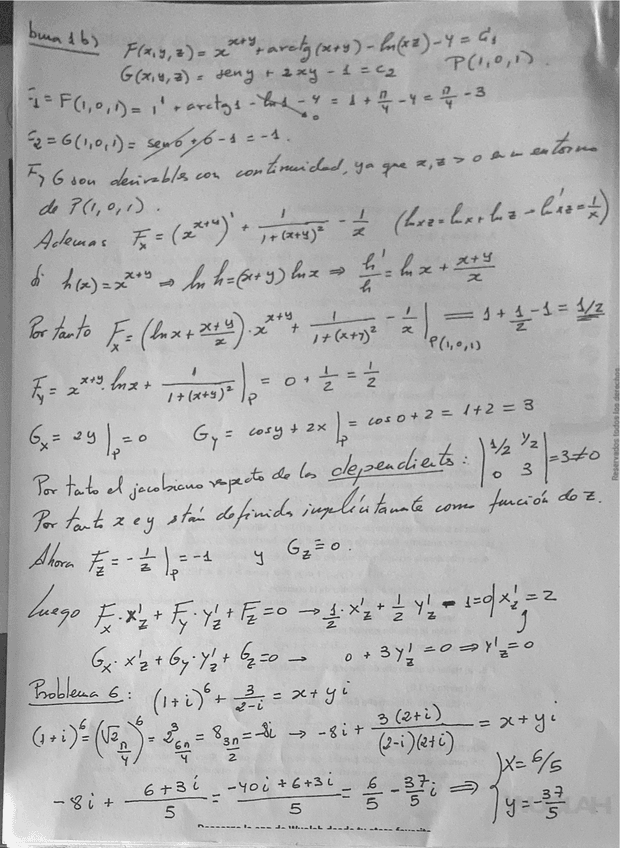 1b) F(x,y,z) = x^{x+y} + arctg(x+y) - ln(xz) - 4 = C_1
G(x,y,z) = sen y + 2xy - 1 = C_2 P(1,0,1).
C_1 = F(1,0,1) = 1^1 + arctg 1 - ln 1 - 4 = 1 + π/4 - 4 = π/4 - 3
C_2 = G(1,0,1) = sen 0 + 0 - 1 = -1.
F y G son derivables con continuidad, ya que x, z > 0 en un entorno
de P(1,0,1).
Ademas F_x = (x^{x+y})' + 1/(1+(x+y)^2) - 1/x (ln xz = ln x + ln z → ln' xz = 1/x)
Si h(x) = x^{x+y} ⇒ ln h = (x+y) ln x ⇒ h'/h = ln x + (x+y)/x
Por tanto F_x = (ln x + (x+y)/x) · x^{x+y} + 1/(1+(x+y)^2) - 1/x |_{P(1,0,1)} = 1 + 1/2 - 1 = 1/2
F_y = x^{x+y} · ln x + 1/(1+(x+y)^2) |_P = 0 + 1/2 = 1/2
G_x = 2y |_P = 0 G_y = cos y + 2x |_P = cos 0 + 2 = 1 + 2 = 3
Por tanto el jacobiano respecto de las dependients: |1/2 1/2 0 3| = 3 ≠ 0
Por tanto x e y están definidas implícitamente como función de z.
Ahora F_z = -1/z |_P = -1 y G_z = 0.
Luego F_x · x'_z + F_y · y'_z + F_z = 0 → 1/2 · x'_z + 1/2 y'_z - 1 = 0 | x'_z = 2
G_x · x'_z + G_y · y'_z + G_z = 0 → 0 + 3y'_z = 0 ⇒ y'_z = 0
Problema 6: (1+i)^6 + 3/(2-i) = x + yi
(1+i)^6 = (√2_{π/4})^6 = 2^3_{6π/4} = 8_{3π/2} = -8i → -8i + 3(2+i)/((2-i)(2+i)) = x + yi
-8i + (6+3i)/5 = (-40i+6+3i)/5 = 6/5 - 37/5 i ⇒ { x = 6/5 y = -37/5
Reservados todos los derechos